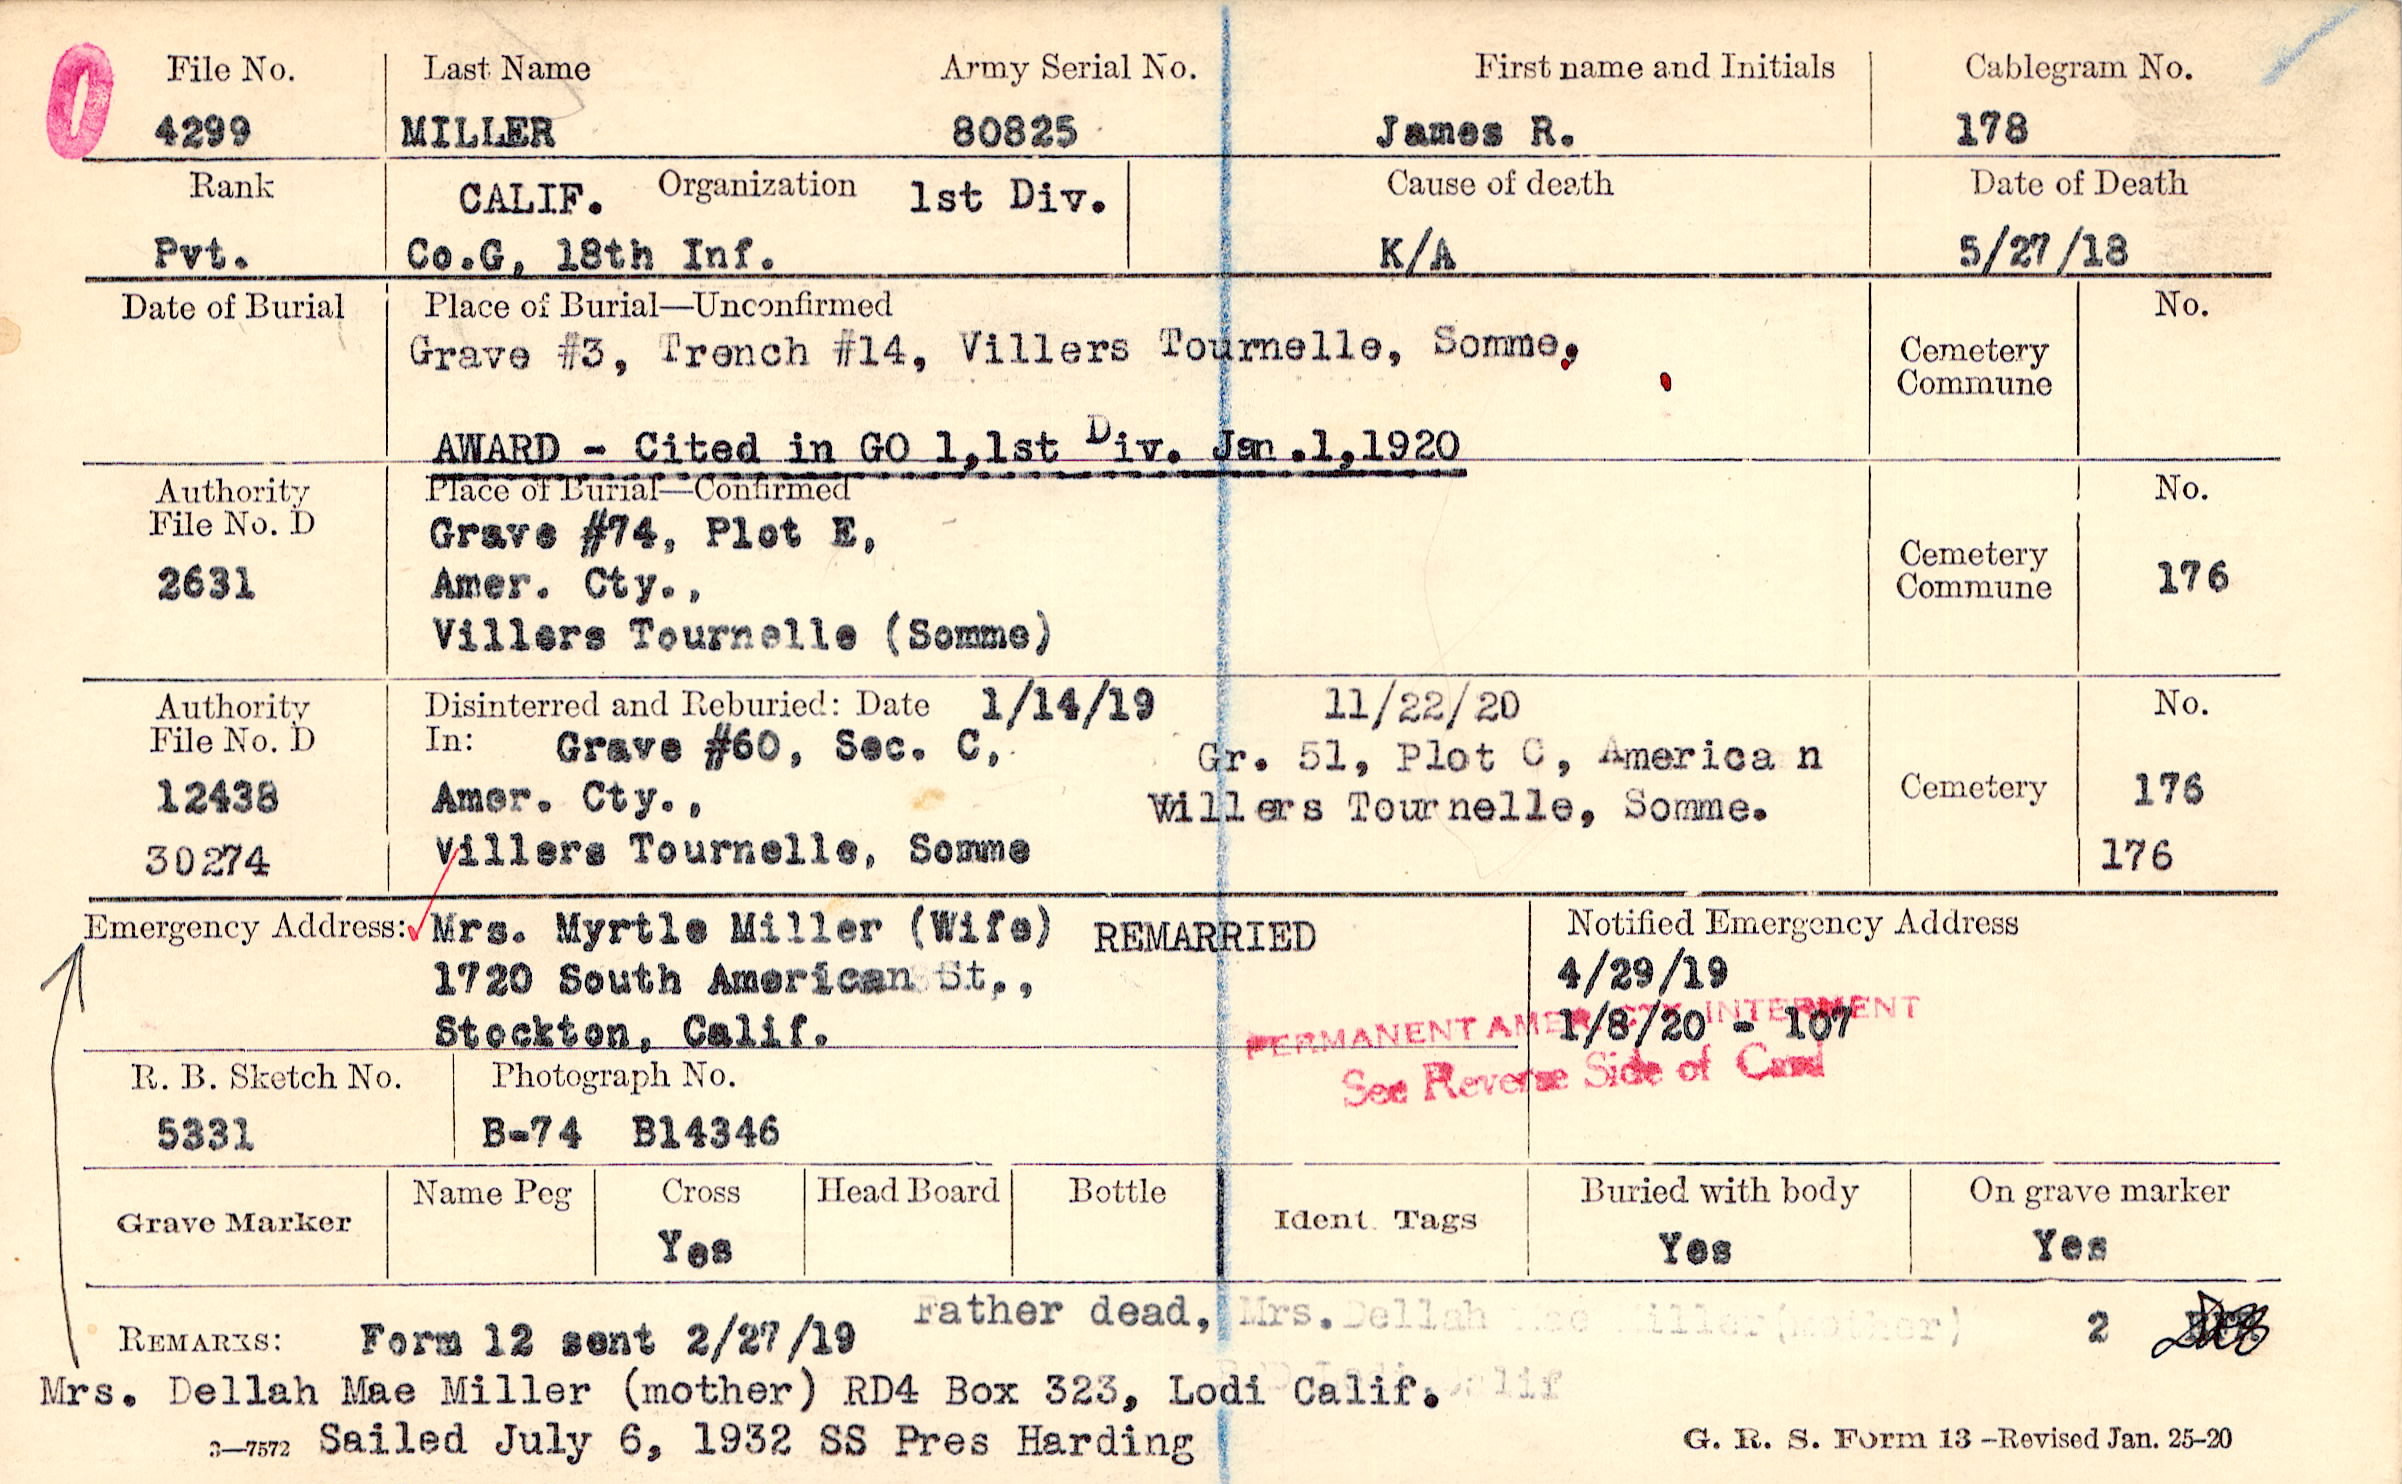 File No. Last Name Army Serial No. First name and Initials Cablegram No.
4299 MILLER 80825 James R. 178
Rank CALIF. Organization 1st Div. Cause of death Date of Death
Pvt. Co.G, 18th Inf. K/A 5/27/18
Date of Burial Place of Burial—Unconfirmed No.
Grave #3, Trench #14, Villers Tournelle, Somme, Cemetery
Commune
AWARD - Cited in GO 1,1st Div. Jan.1,1920
Authority Place of Burial—Confirmed No.
File No. D Grave #74, Plot E, Cemetery
2631 Amer. Cty., Commune 176
Villers Tournelle (Somme)
Authority Disinterred and Reburied: Date 1/14/19 11/22/20 No.
File No. D In: Grave #60, Sec. C, Gr. 51, Plot C, America n
12438 Amer. Cty., Willers Tournelle, Somme. Cemetery 176
30274 Villers Tournelle, Somme 176
Emergency Address: Mrs. Myrtle Miller (Wife) REMARRIED Notified Emergency Address
1720 South American St., 4/29/19
Stockton, Calif. 1/8/20 - 107
PERMANENT AMER. CTY. INTERMENT
See Reverse Side of Card
R. B. Sketch No. Photograph No.
5331 B-74 B14346
Grave Marker Name Peg Cross Head Board Bottle Ident. Tags Buried with body On grave marker
Yes Yes Yes
Father dead, Mrs. Dellah Mae Miller (mother)
REMARKS: Form 12 sent 2/27/19 2
Lodi Calif
Mrs. Dellah Mae Miller (mother) RD4 Box 323, Lodi Calif.
3—7572 Sailed July 6, 1932 SS Pres Harding G. R. S. Form 13 —Revised Jan. 25-20